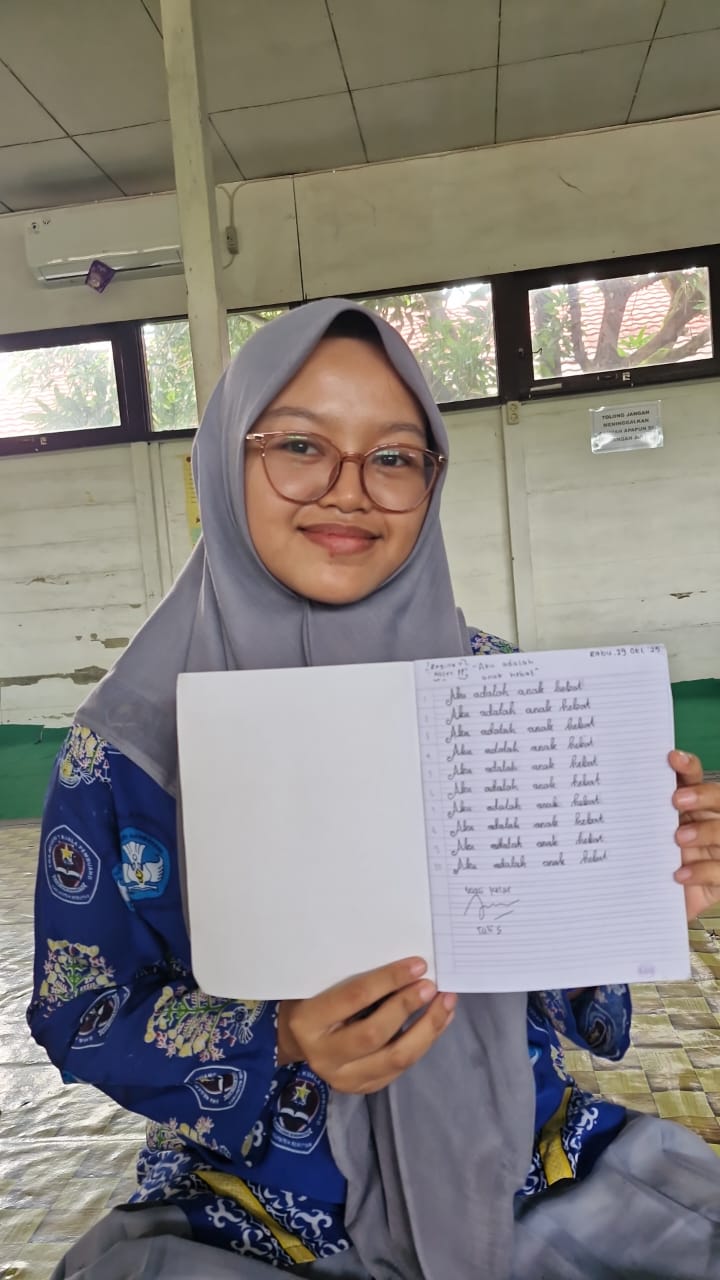 TOLONG JANGAN
MENINGGALKAN
APAPUN
Rabu, 29 Okt '25
"Aku adalah
anak hebat"
1 Aku adalah anak hebat
2 Aku adalah anak hebat
3 Aku adalah anak hebat
4 Aku adalah anak hebat
5 Aku adalah anak hebat
6 Aku adalah anak hebat
7 Aku adalah anak hebat
8 Aku adalah anak hebat
9 Aku adalah anak hebat
10 Aku adalah anak hebat